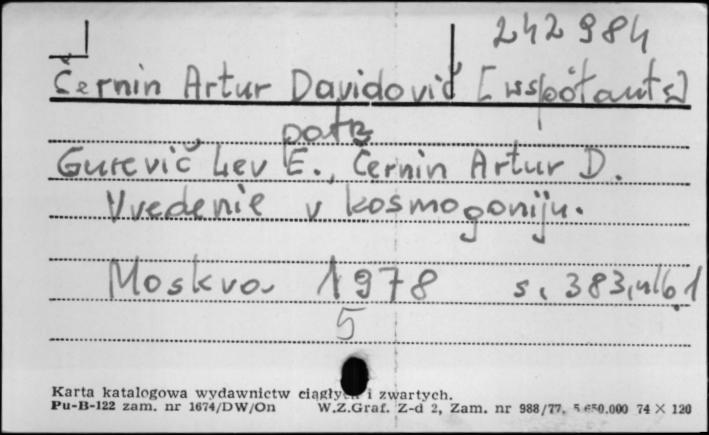 242984
Černin Artur Davidovič [współaut.]
patrz
Gurevič Lev E., Černin Artur D.
Vvedenie v kosmogoniju.
Moskva 1978 s. 383, nlb. 1
5
Karta katalogowa wydawnictw ciągłych i zwartych.
Pu-B-122 zam. nr 1674/DW/On W.Z.Graf. Z-d 2, Zam. nr 988/77. 5.650.000 74 × 120